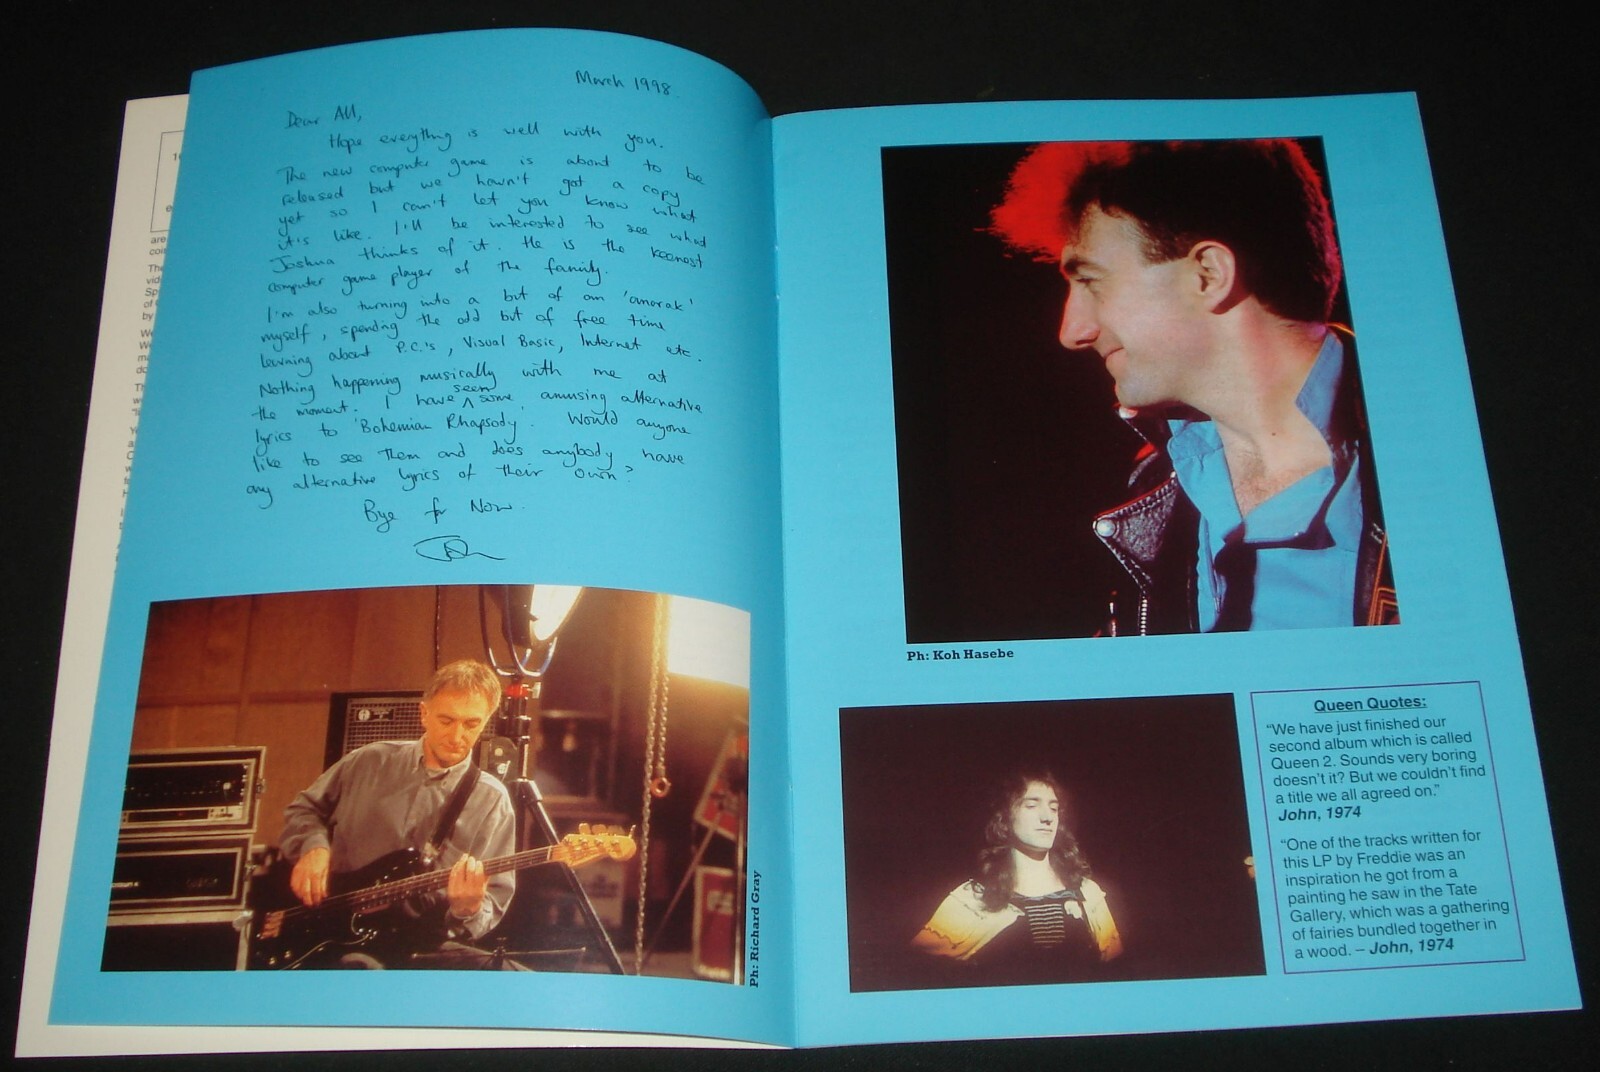 March 1998.
Dear All,
Hope everything is well with you.
The new computer game is about to be
released but we havn't got a copy
yet so I can't let you know what
it's like. I'll be interested to see what
Joshua thinks of it. He is the keenest
computer game player of the family.
I'm also turning into a bit of an 'anorak'
myself, spending the odd bit of free time
learning about P.C.'s, Visual Basic, Internet etc.
Nothing happening musically with me at
the moment. I have seen some amusing alternative
lyrics to 'Bohemian Rhapsody'. Would anyone
like to see them and does anybody have
any alternative lyrics of their own?
Bye for Now.
John
Ph: Richard Gray
Ph: Koh Hasebe
Queen Quotes:
“We have just finished our
second album which is called
Queen 2. Sounds very boring
doesn't it? But we couldn't find
a title we all agreed on.”
John, 1974
“One of the tracks written for
this LP by Freddie was an
inspiration he got from a
painting he saw in the Tate
Gallery, which was a gathering
of fairies bundled together in
a wood. – John, 1974